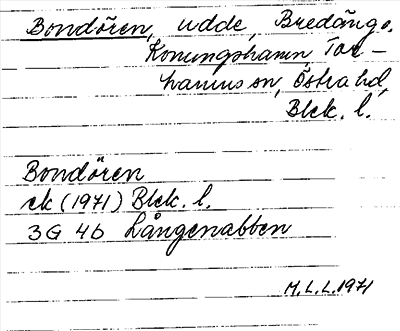 Bondören, udde, Bredänge,
Konungshamn, Tor-
hamns sn, Östra hd,
Blek. l.
Bondören
ek (1971) Blek. l.
3G 4b Långenabben
M.L.L. 1971